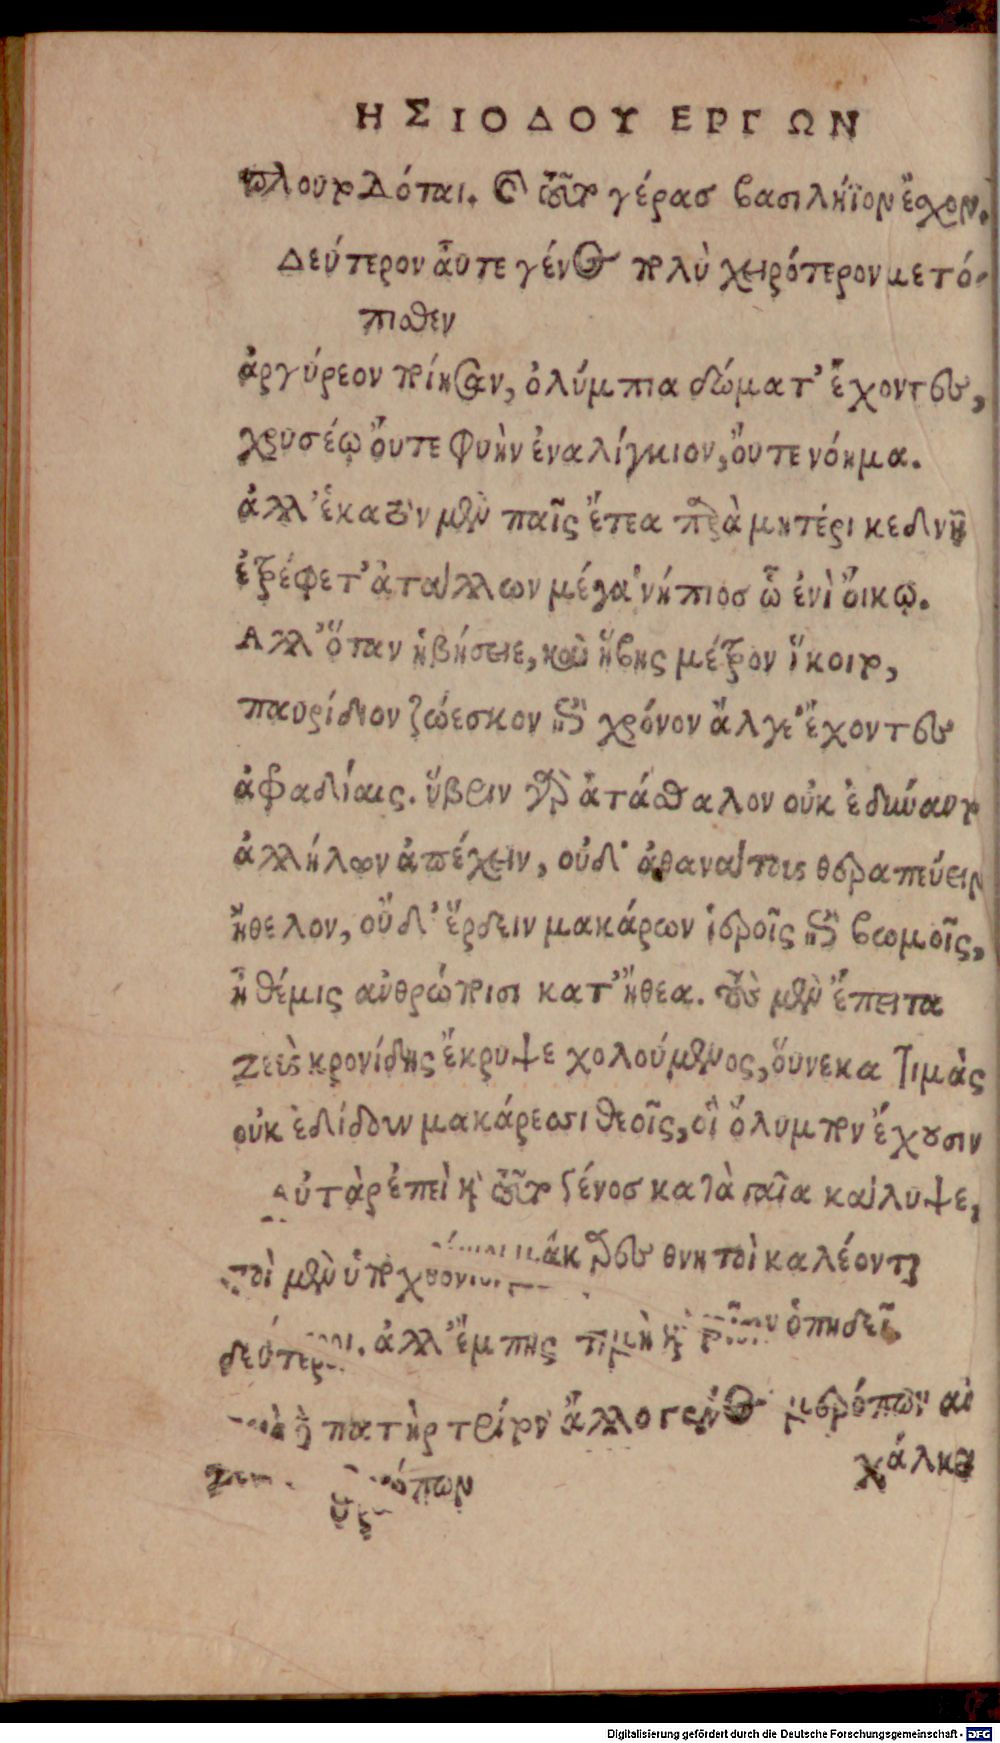 ΗΣΙΟΔΟΥ ΕΡΓΩΝ
πλουτοδόται. καὶ τοῦτο γέρας βασιλήϊον ἔσχον.
Δεύτερον αὖτε γένος πολὺ χειρότερον μετό-
πισθεν
ἀργύρεον ποίησαν, ὀλύμπια δώματ' ἔχοντες,
χρυσέῳ οὔτε φυὴν ἐναλίγκιον, οὔτε νόημα.
ἀλλ' ἑκατὸν μὲν παῖς ἔτεα παρὰ μητέρι κεδνῇ
ἐτρέφετ' ἀτάλλων μέγα νήπιος ᾧ ἐνὶ οἴκῳ.
Αλλ' ὅταν ἡβήσειε, καὶ ἥβης μέτρον ἵκοιτο,
παυρίδιον ζώεσκον ἐπὶ χρόνον ἄλγε' ἔχοντες
ἀφραδίαις. ὕβριν γὰρ ἀτάσθαλον οὐκ ἐδύναντο
ἀλλήλων ἀπέχειν, οὐδ' ἀθανάτους θεραπεύειν
ἤθελον, οὐδ' ἔρδειν μακάρων ἱεροῖς ἐπὶ βωμοῖς,
ἣ θέμις ἀνθρώποισι κατ' ἤθεα. τοὺς μὲν ἔπειτα
Ζεὺς κρονίδης ἔκρυψε χολούμενος, οὕνεκα τιμὰς
οὐκ ἐδίδουν μακάρεσσι θεοῖς, οἳ ὄλυμπον ἔχουσιν
αὐτὰρ ἐπεὶ καὶ τοῦτο γένος κατὰ γαῖα κάλυψε,
τοὶ μὲν ὑποχθόνιοι μάκαρες θνητοὶ καλέονται
δεύτεροι. ἀλλ' ἔμπης τιμὴ καὶ τοῖσιν ὀπηδεῖ.
Ζεὺς δὲ πατὴρ τρίτον ἄλλο γένος μερόπων ἀν
θρώπων
χάλκει
Digitalisierung gefördert durch die Deutsche Forschungsgemeinschaft - DFG